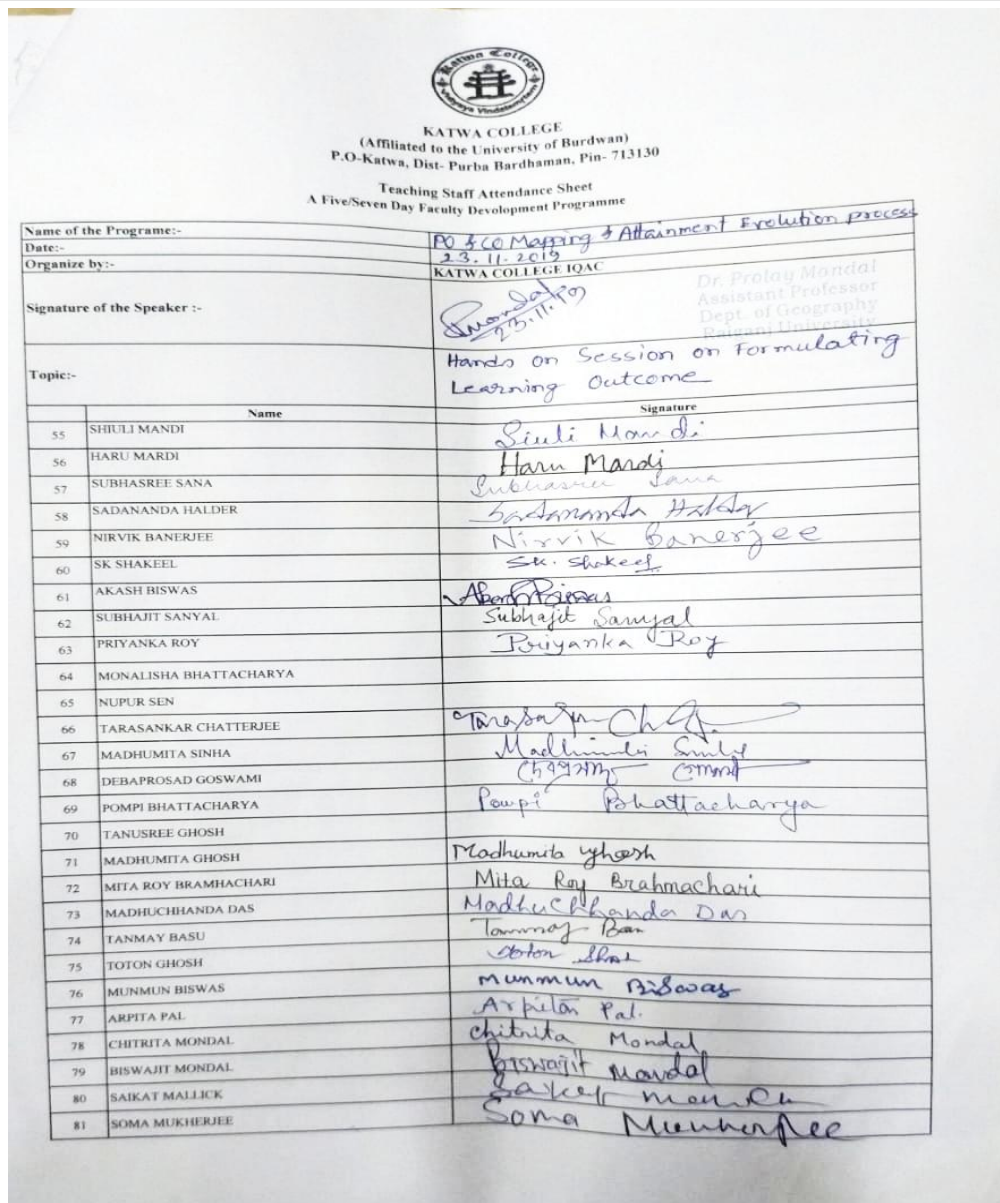 Katwa College
Vidyaya Vindatemrytam
KATWA COLLEGE
(Affiliated to the University of Burdwan)
P.O-Katwa, Dist- Purba Bardhaman, Pin- 713130
Teaching Staff Attendance Sheet
A Five/Seven Day Faculty Devolopment Programme
Name of the Programe:- PO & CO Mapping & Attainment Evolution process
Date:- 23.11.2019
Organize by:- KATWA COLLEGE IQAC
Signature of the Speaker :- 23.11.19
Dr. Prolay Mondal
Assistant Professor
Dept. of Geography
Raiganj University
Topic:- Hands on Session on Formulating
Learning Outcome
Name Signature
55 SHIULI MANDI Siuli Mandi
56 HARU MARDI Haru Mardi
57 SUBHASREE SANA Subhasree Sana
58 SADANANDA HALDER Sadananda Halder
59 NIRVIK BANERJEE Nirvik Banerjee
60 SK SHAKEEL SK. Shakeel
61 AKASH BISWAS Akash Biswas
62 SUBHAJIT SANYAL Subhajit Sanyal
63 PRIYANKA ROY Priyanka Roy
64 MONALISHA BHATTACHARYA
65 NUPUR SEN
66 TARASANKAR CHATTERJEE
67 MADHUMITA SINHA Madhumita Sinha
68 DEBAPROSAD GOSWAMI
69 POMPI BHATTACHARYA Pompi Bhattacharya
70 TANUSREE GHOSH
71 MADHUMITA GHOSH Madhumita Ghosh
72 MITA ROY BRAMHACHARI Mita Roy Brahmachari
73 MADHUCHHANDA DAS Madhuchhanda Das
74 TANMAY BASU Tanmay Basu
75 TOTON GHOSH Toton
76 MUNMUN BISWAS Munmun Biswas
77 ARPITA PAL Arpita Pal.
78 CHITRITA MONDAL Chitrita Mondal
79 BISWAJIT MONDAL Biswajit Mondal
80 SAIKAT MALLICK
81 SOMA MUKHERJEE Soma Mukherjee